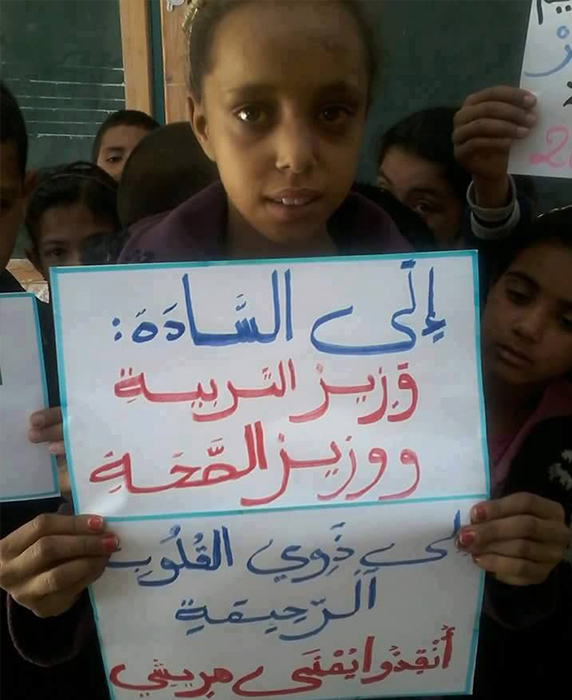 إِلَى السَّادَةِ:
وَزِيرُ التَّرْبِيَةِ
و وزير الصَّحَةِ
إلى ذَوِي القُلُوبِ
الرَّحِيمَةِ
أَنْقِذُوا يُمْنَى مريشي